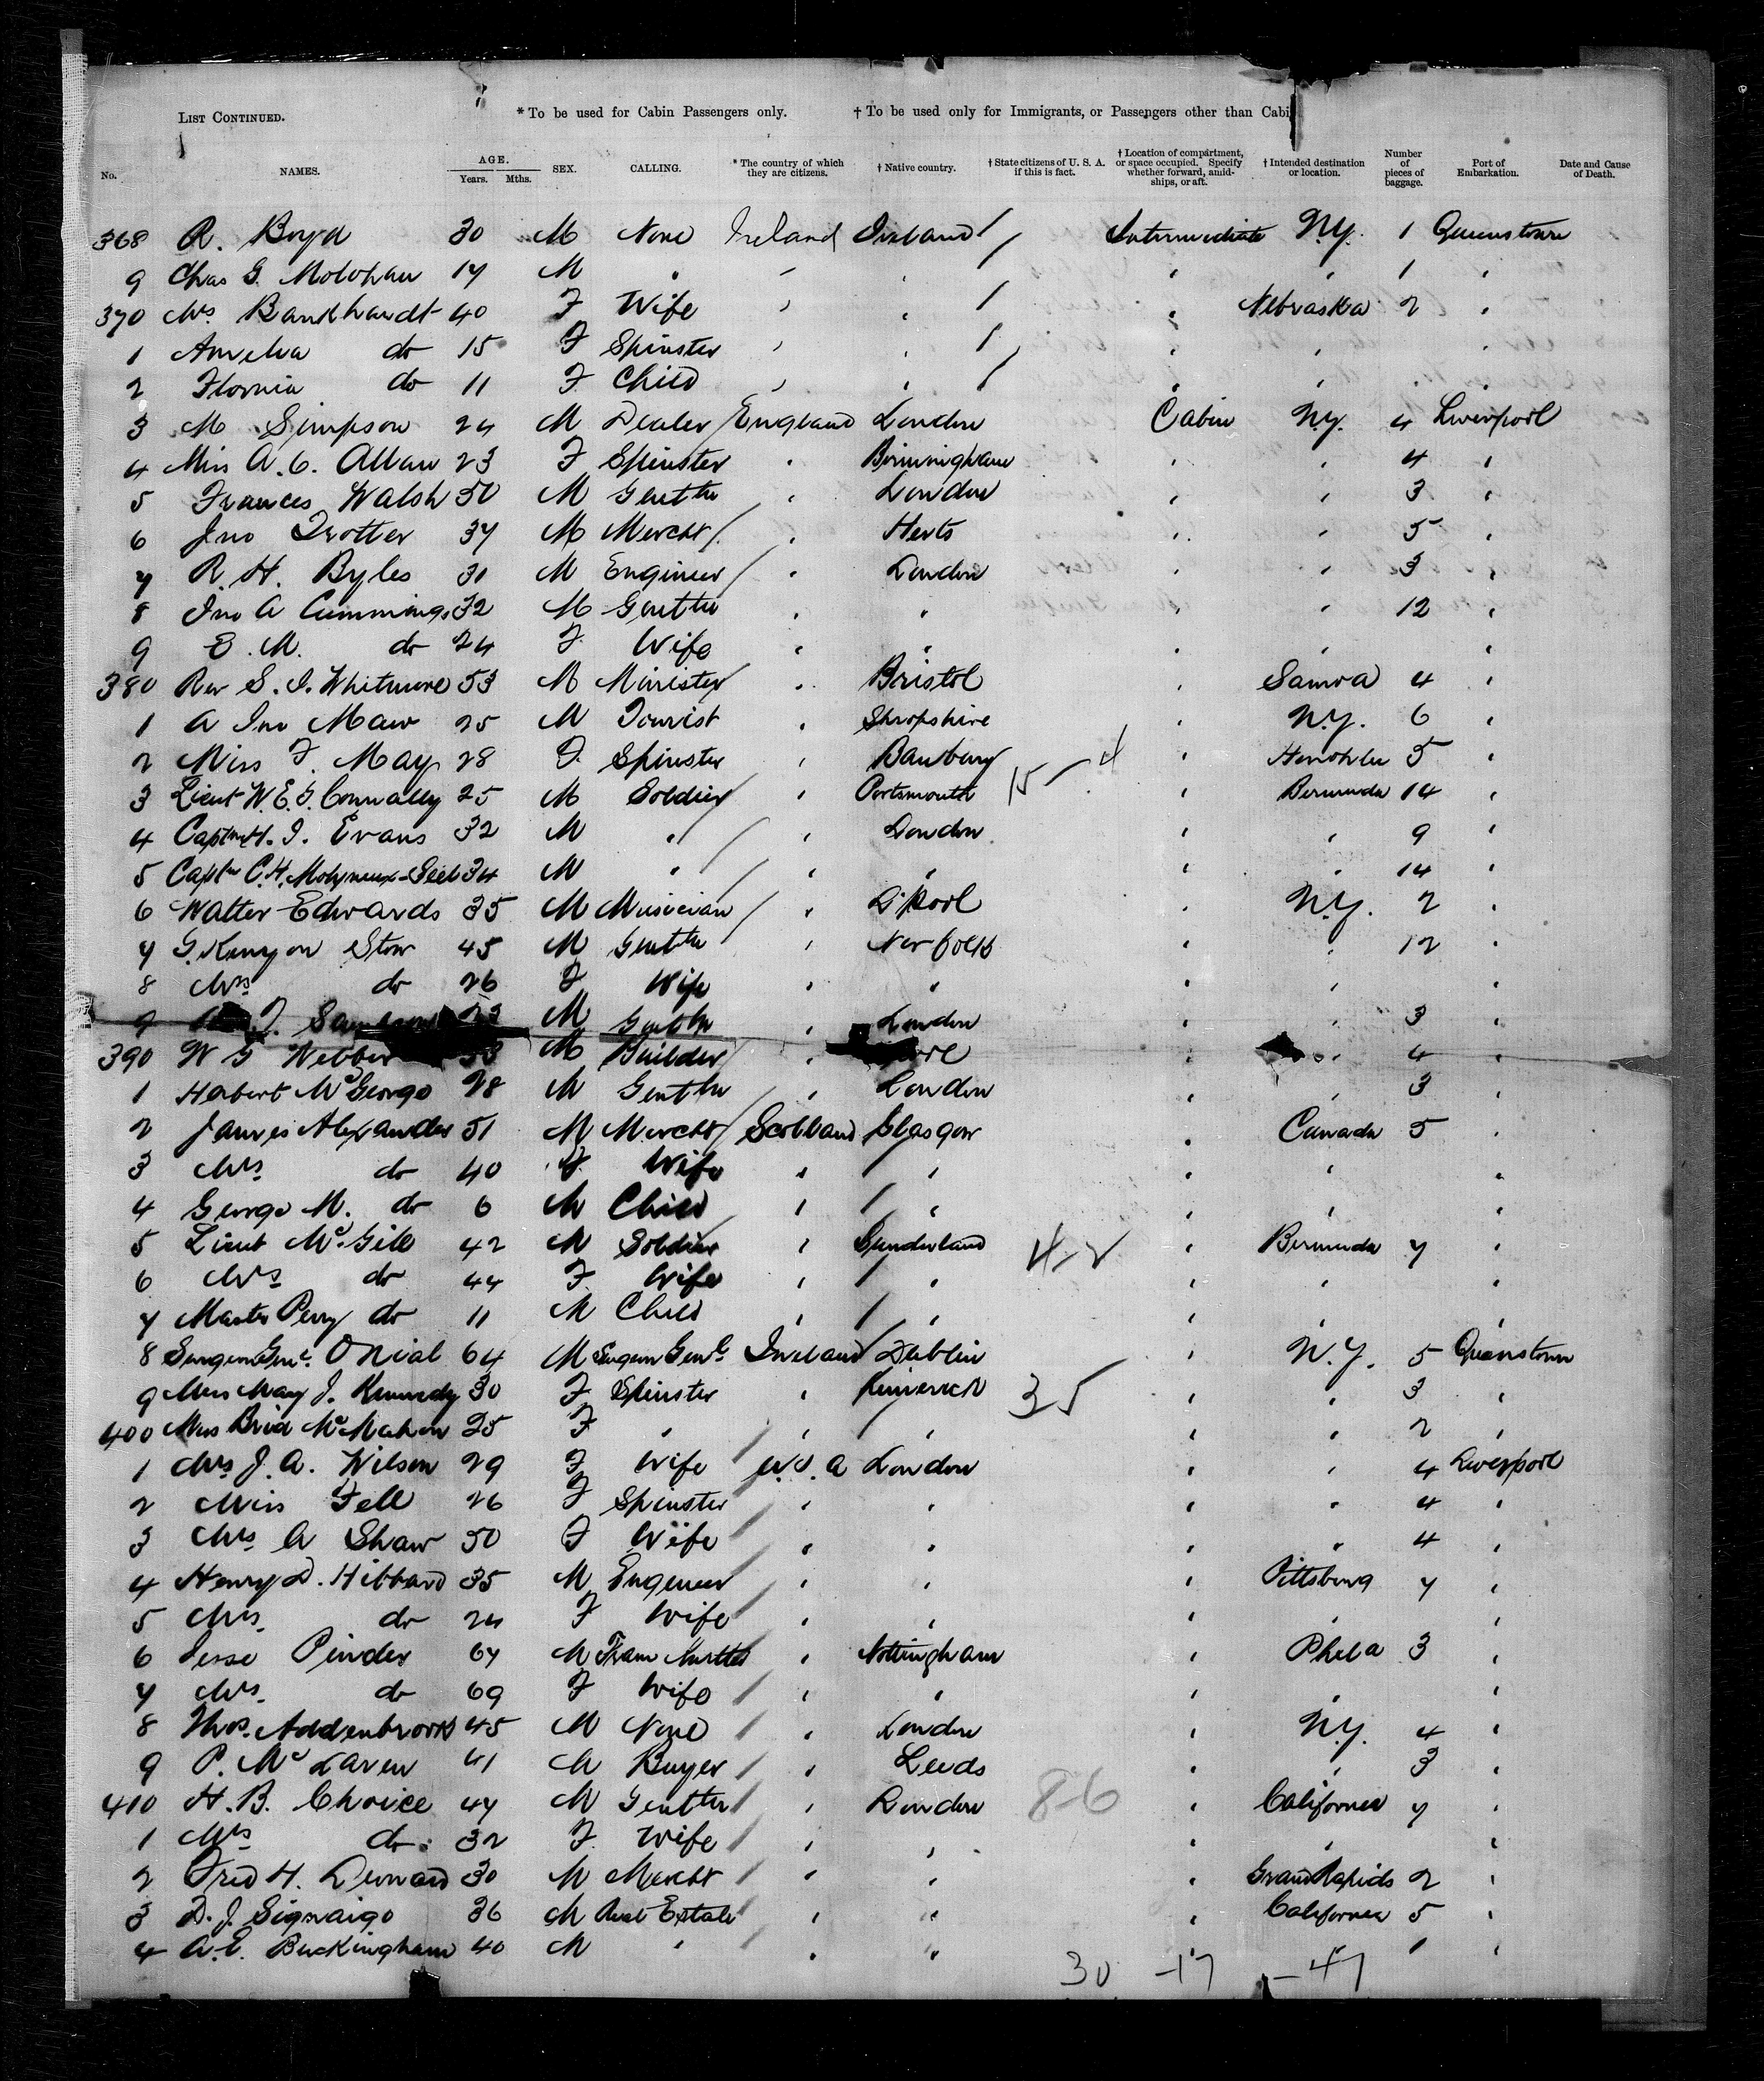 LIST CONTINUED. * To be used for Cabin Passengers only. † To be used only for Immigrants, or Passengers other than Cabi
No. NAMES. AGE. Years. Mths. SEX. CALLING. * The country of which they are citizens. † Native country. † State citizens of U. S. A. if this is fact. † Location of compartment, or space occupied. Specify whether forward, amidships, or aft. † Intended destination or location. Number of pieces of baggage. Port of Embarkation. Date and Cause of Death.
368 R. Boyd 30 M None Ireland Ireland / Intermediate N.Y. 1 Queenstown
9 Chas G. Molohan 17 M " " " " " 1 "
370 Mrs Bankhardt 40 F Wife " " / " Nebraska 2 "
1 Amelia do 15 F Spinster " " / " " "
2 do 11 F Child " " / " " "
3 M Simpson 24 M Dealer / England London Cabin N.Y. 4 Liverpool
4 Miss A. C. Allan 23 F Spinster " Birmingham " " 4 "
5 Frances Walsh 50 M Gentln " London " " 3 "
6 Jno Trotter 37 M Mercht / " Herts " " 5 "
7 R. H. Byles 31 M Engineer / " London " " 3 "
8 Jno A Cummings 32 M Gentln " " " " 12 "
9 E. M. do 24 F Wife " " " " "
380 Rev S. J. Whitmore 53 M Minister / " Bristol " Samoa 4 "
1 A Jno Maw 25 M Tourist " Shropshire " N.Y. 6 "
2 Miss F. May 28 F Spinster " Banbury " Honolulu 5 "
3 Lieut W. E. G. Connally 25 M Soldier / " Portsmouth 15 - 4 " Bermuda 14 "
4 Captn H. J. Evans 32 M " / " London " " 9 "
5 Captn C. H. Molyneux-Seel 34 M " / " " " " 14 "
6 Walter Edwards 35 M Musician / " L'pool " N.Y. 2 "
7 G. Kenyon Stow 45 M Gentln " Norfolk " " 12 "
8 Mrs do 26 F Wife " " " " "
9 J. M Gentln " London " " 3 "
390 W G Webber 53 M Builder / " " " 4 "
1 Herbert McGeorge 28 M Gentln " London " " 3 "
2 James Alexander 51 M Mercht / Scotland Glasgow " Canada 5 "
3 Mrs do 40 F Wife " " " " "
4 George M. do 6 M Child " / " " " "
5 Lieut McGill 42 M Soldier " Sunderland 4-2 " Bermuda 7 "
6 Mrs do 44 F Wife " " " " "
7 Master Percy do 11 M Child " / " " " "
8 Surgeon Genl. ONial 64 M Surgeon Genl. Ireland / Dublin " N.Y. 5 Queenstown
9 Miss Mary J. Kennedy 30 F Spinster " Limerick 35 " " 3 "
400 Miss Brid McMahon 25 F " " / " " " 2 "
1 Mrs J. A. Wilson 29 F Wife / U.S.A London " " 4 Liverpool
2 Miss Fell 26 F Spinster / " " " " 4 "
3 Mrs A Shaw 50 F Wife / " " " " 4 "
4 Henry D. Hibbard 35 M Engineer / " " " Pittsburg 7 "
5 Mrs. do 24 F Wife / " " " " "
6 Jesse Pinder 67 M / " Nottingham " Phila 3 "
7 Mrs. do 69 F Wife / " " " " "
8 Thos. Addenbrook 45 M None / " London " N.Y. 4 "
9 P. McLaren 41 M Buyer / " Leeds " " 3 "
410 H. B. Choice 47 M Gentln / " London 8-6 " California 7 "
1 Mrs do 32 F Wife / " " " " "
2 Fred H. 30 M Mercht / " " " Grand Rapids 2 "
3 D. J. Signaigo 36 M Real Estate / " " " California 5 "
4 A. E. Buckingham 40 M " / " " " " 1 "
30 -17 -47